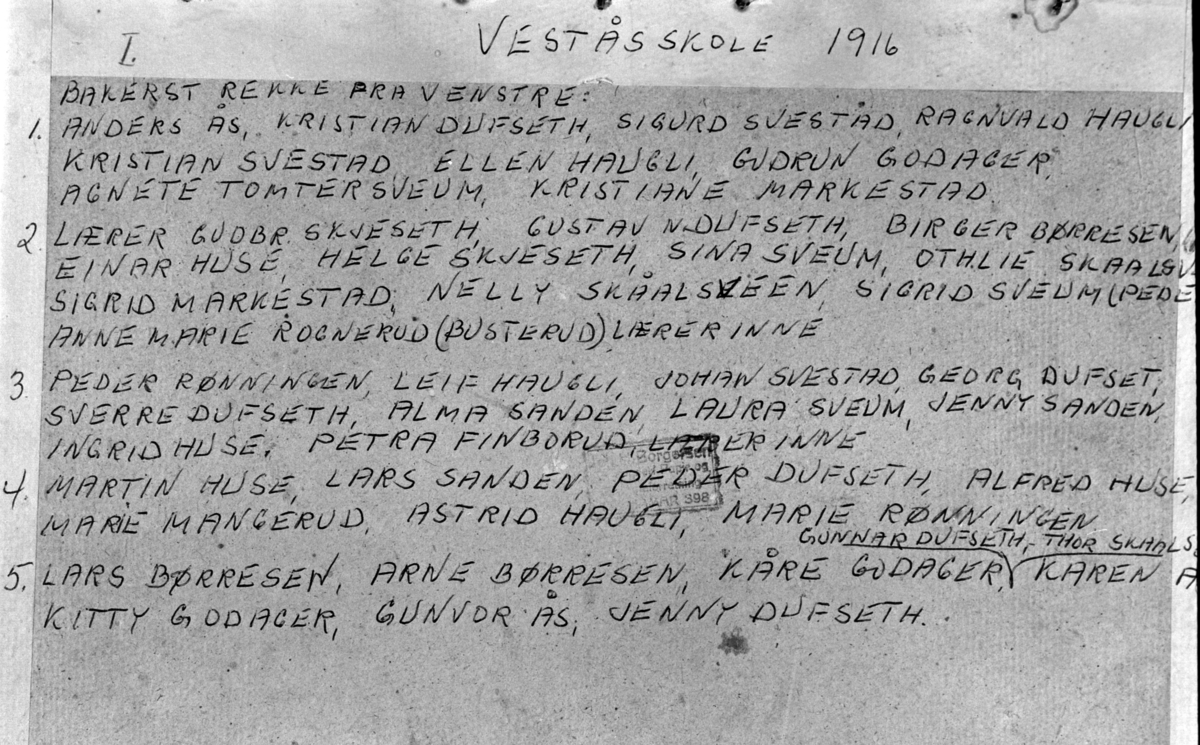 I. VESTÅS SKOLE 1916
BAKERST REKKE FRA VENSTRE:
1. ANDERS ÅS, KRISTIAN DUFSETH, SIGURD SVESTAD, RAGNVALD HAUGLI
KRISTIAN SVESTAD, ELLEN HAUGLI, GUDRUN GODAGER,
AGNETE TOMTERSVEUM, KRISTIANE MARKESTAD
2. LÆRER GUDBR. SKJESETH, GUSTAV N. DUFSETH, BIRGER BØRRESEN,
EINAR HUSE, HELGE SKJESETH, SINA SVEUM, OTHLIE SKAALSV
SIGRID MARKESTAD, NELLY SKÅALSVEEN, SIGRID SVEUM (PEDE
ANNE MARIE ROGNERUD (BUSTERUD) LÆRERINNE
3. PEDER RØNNINGEN, LEIF HAUGLI, JOHAN SVESTAD, GEORG DUFSET,
SVERRE DUFSETH, ALMA SANDEN, LAURA SVEUM, JENNY SANDEN,
INGRID HUSE. PETRA FINBORUD, LÆRERINNE
Borgersen
og
398
4. MARTIN HUSE, LARS SANDEN, PEDER DUFSETH, ALFRED HUSE,
MARIE MANGERUD, ASTRID HAUGLI, MARIE RØNNINGEN
GUNNAR DUFSETH, THOR SKAALS
5. LARS BØRRESEN, ARNE BØRRESEN, KÅRE GODAGER, KAREN A
KITTY GODAGER, GUNVOR ÅS, JENNY DUFSETH.